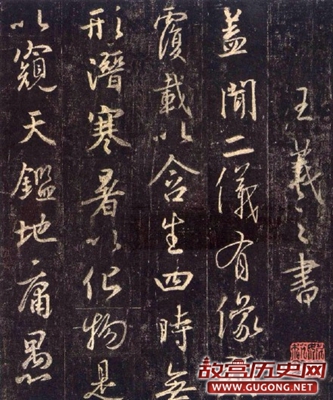 王羲之書
蓋聞二儀有像
覆載以含生四時無
形潛寒暑以化物是
以窺天鑑地庸愚
故宫历史网
WWW.GUGONG.NET